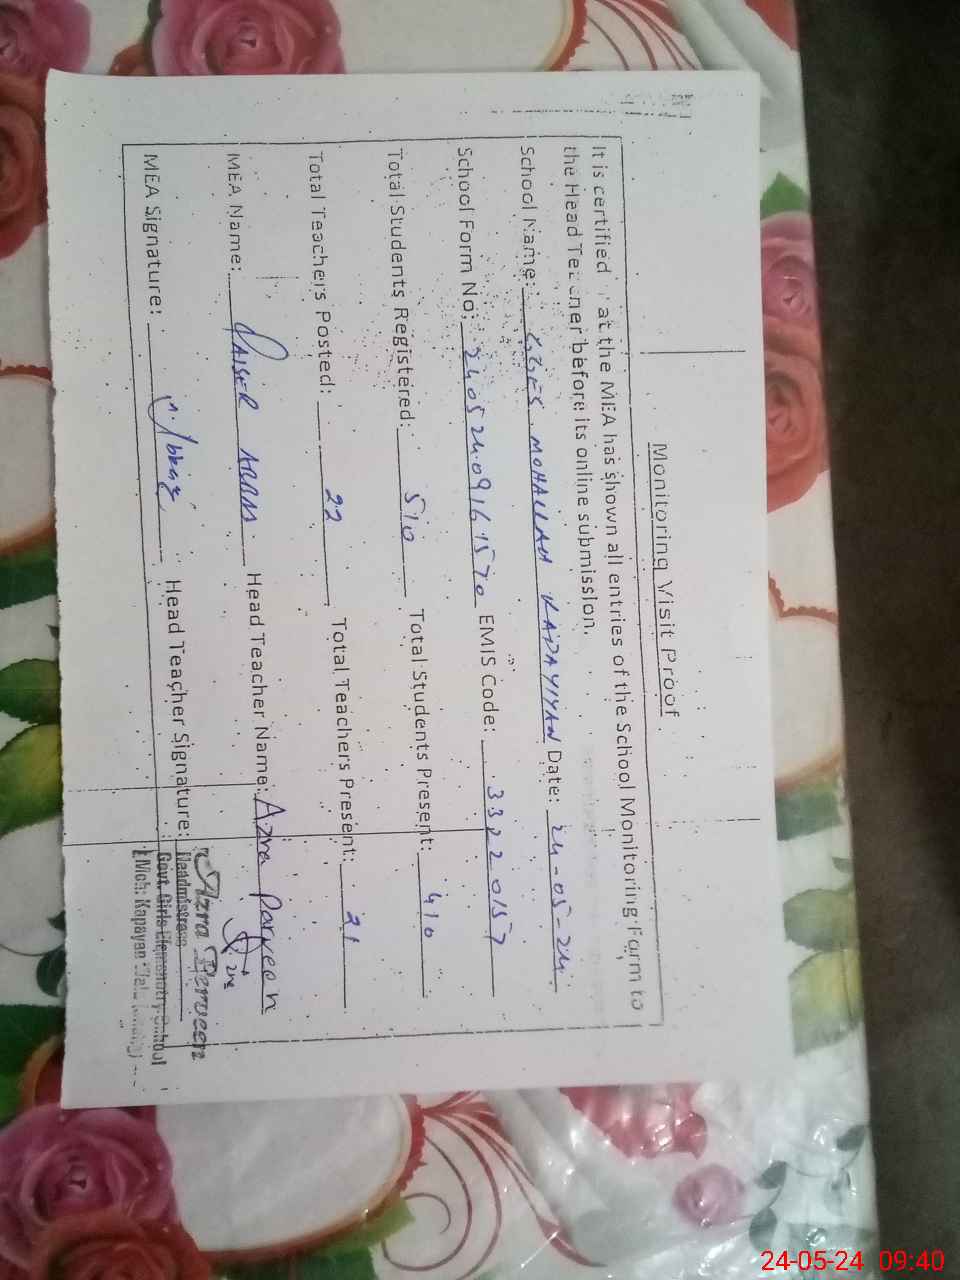 Monitoring Visit Proof
It is certified at the MEA has shown all entries of the School Monitoring Farm to
the Head Teacher before its online submission.
School Name: GGES MOHALLAH KAPAYIYAN Date: 24-05-24
School Form No: 24052409161570 EMIS Code: 33220157
Total Students Registered: 510 Total Students Present: 410
Total Teachers Posted: 22 Total Teachers Present: 21
MEA Name: QAISER ABBAS Head Teacher Name: Azra Parveen
MEA Signature: Head Teacher Signature:
Azra Perveen
Headmistress
Govt. Girls Elementry School
Moh: Kapayan
24-05-24 09:40